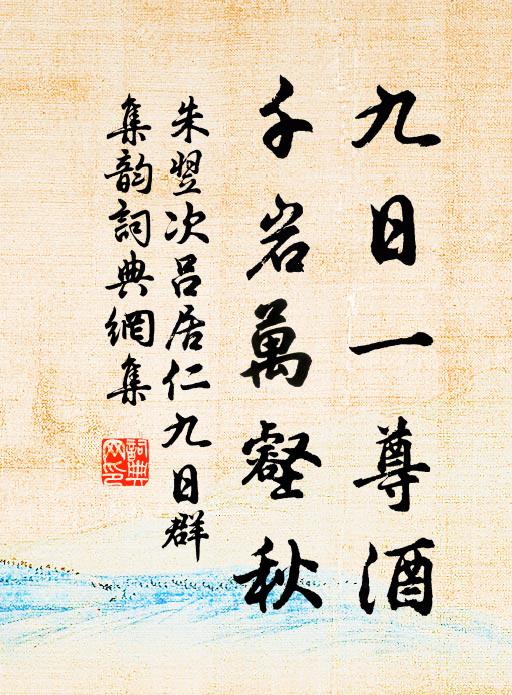 九日一尊酒
千岩萬壑秋
朱翌次呂居仁九日群
集韵詞典網集
詞典網印